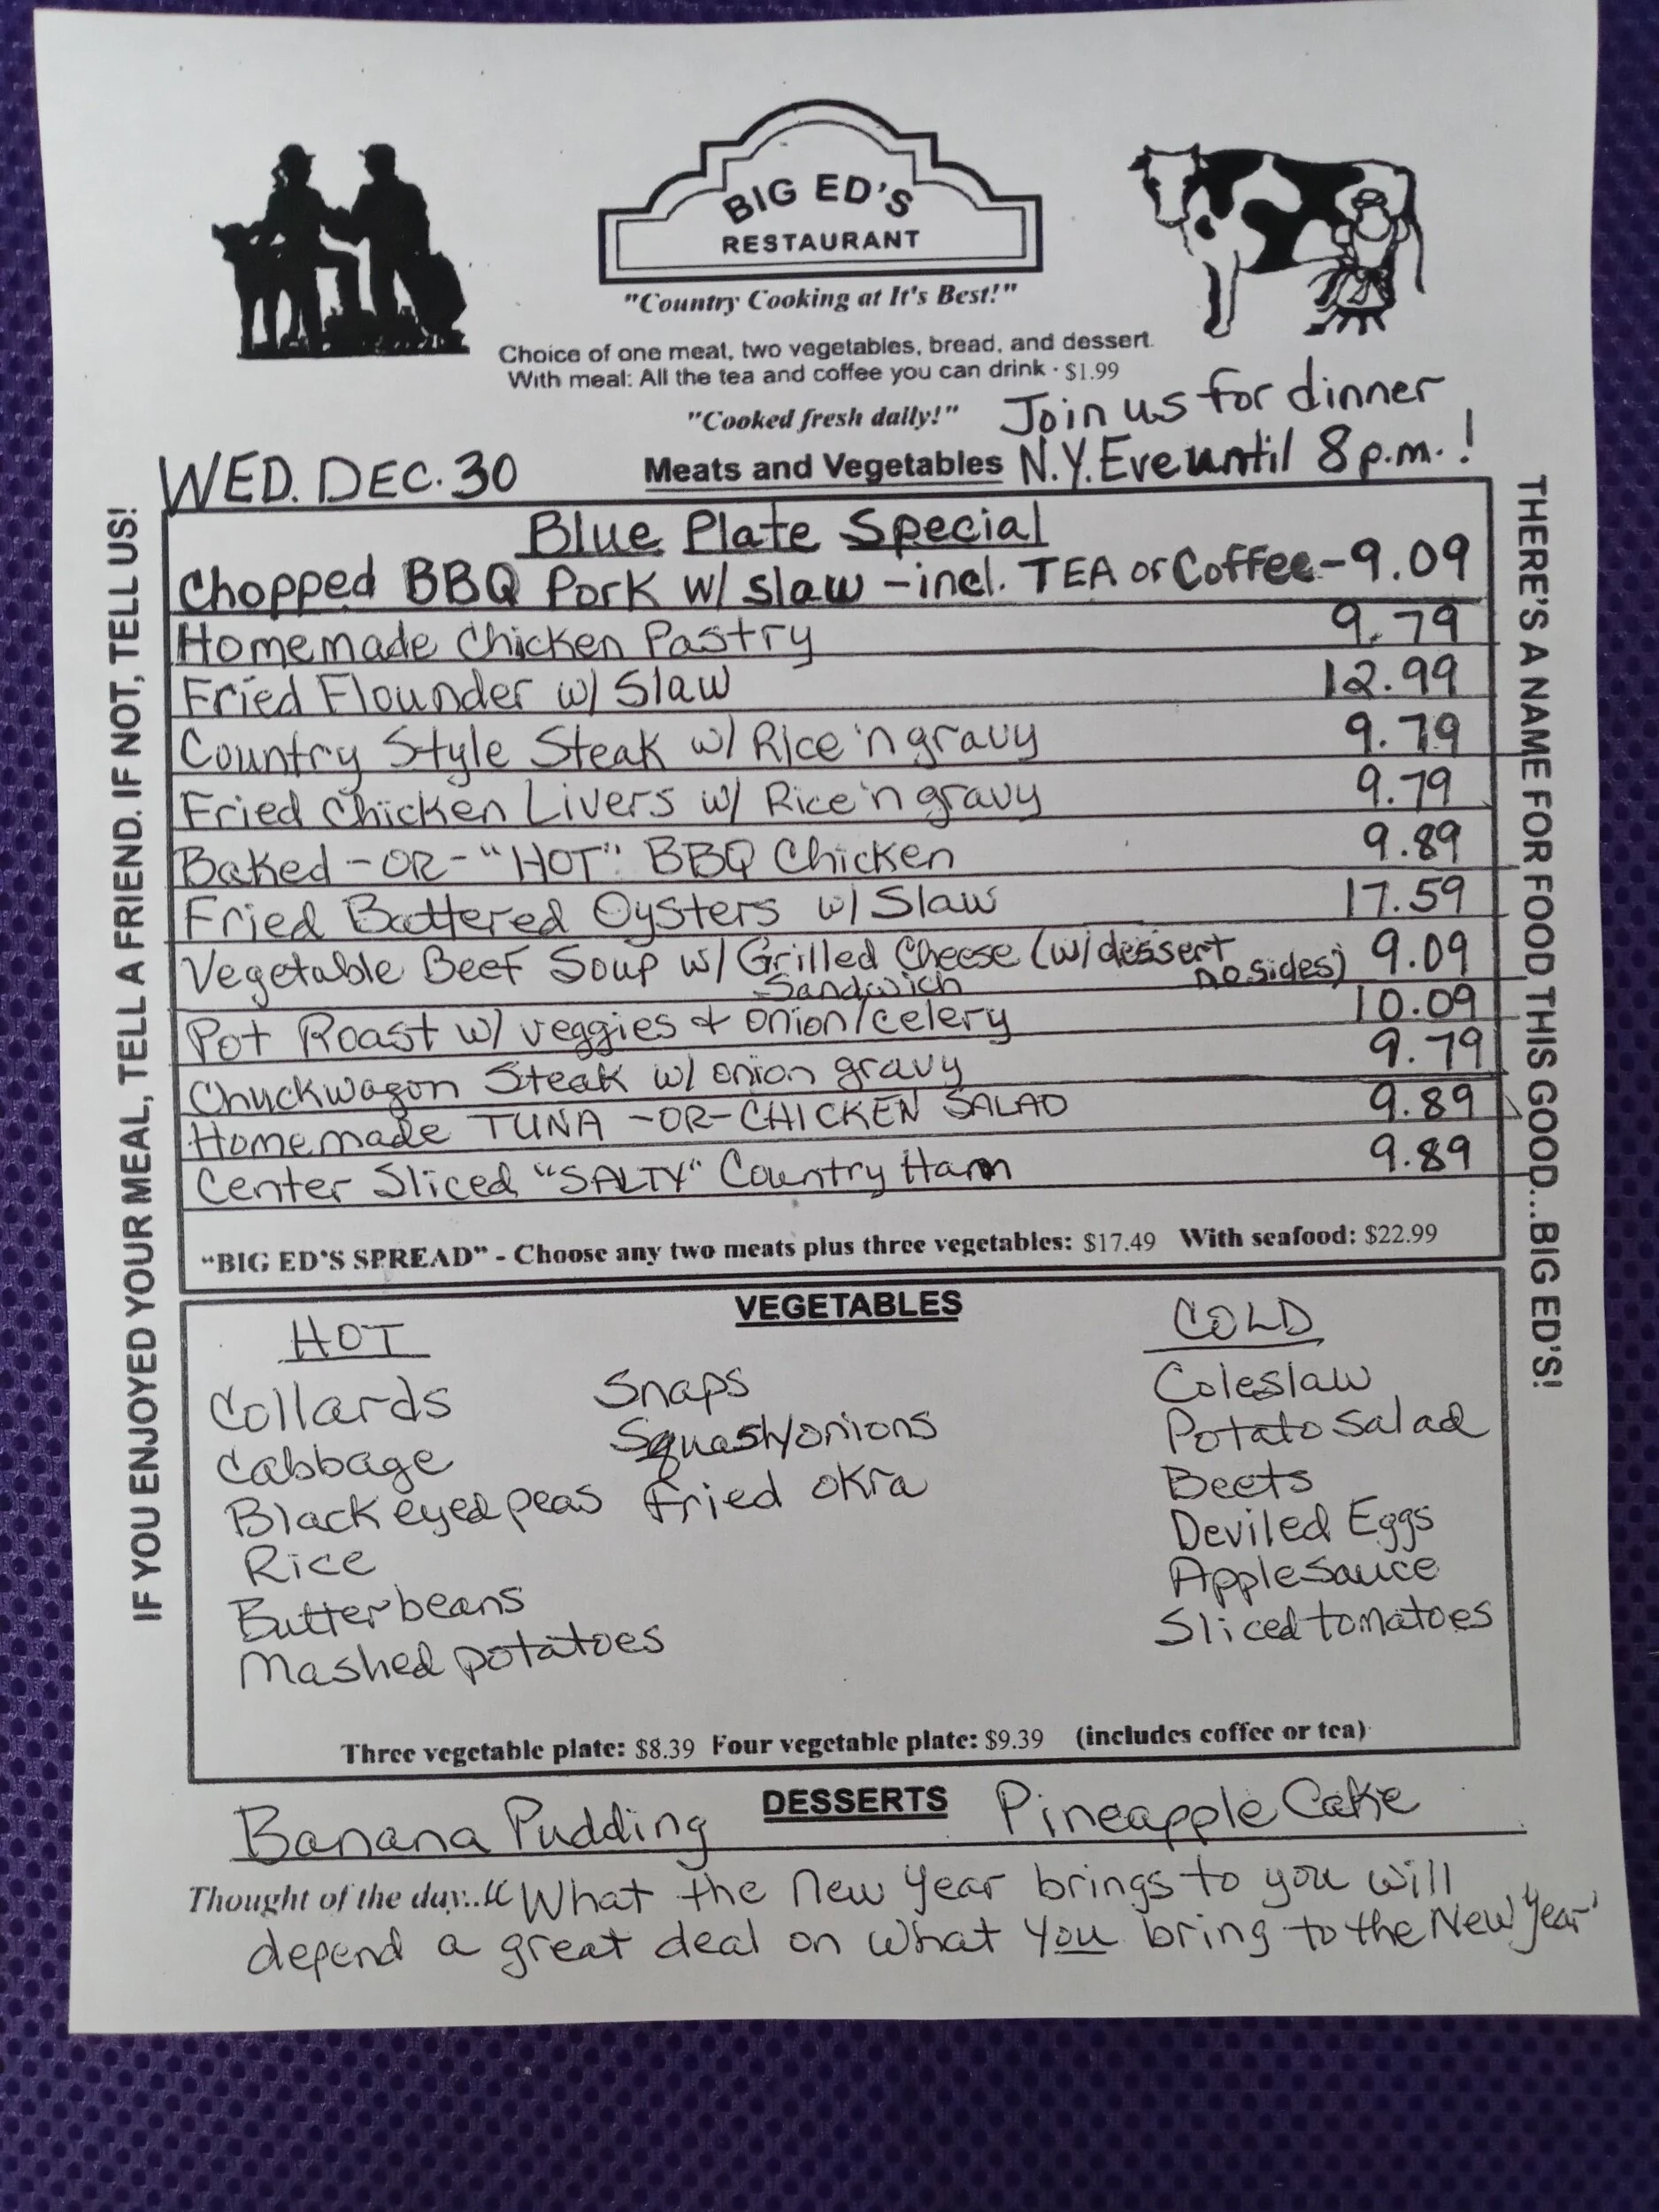 BIG ED'S
RESTAURANT
"Country Cooking at It's Best!"
Choice of one meat, two vegetables, bread, and dessert.
With meal: All the tea and coffee you can drink · $1.99
"Cooked fresh daily!" Join us for dinner
WED. DEC. 30 Meats and Vegetables N.Y. Eve until 8 p.m.!
Blue Plate Special
Chopped BBQ Pork w/ slaw - incl. TEA or Coffee - 9.09
Homemade Chicken Pastry 9.79
Fried Flounder w/ Slaw 12.99
Country Style Steak w/ Rice 'n gravy 9.79
Fried Chicken Livers w/ Rice 'n gravy 9.79
Baked -OR- "HOT" BBQ Chicken 9.89
Fried Battered Oysters w/ Slaw 17.59
Vegetable Beef Soup w/ Grilled Cheese (w/ dessert 9.09
Sandwich no sides)
Pot Roast w/ veggies & onion/celery 10.09
Chuckwagon Steak w/ onion gravy 9.79
Homemade TUNA -OR- CHICKEN SALAD 9.89
Center Sliced "SALTY" Country Ham 9.89
"BIG ED'S SPREAD" - Choose any two meats plus three vegetables: $17.49 With seafood: $22.99
VEGETABLES
HOT
Collards
Cabbage
Black eyed peas
Rice
Butterbeans
Mashed potatoes
Snaps
Squash/onions
Fried okra
COLD
Coleslaw
Potato Salad
Beets
Deviled Eggs
Applesauce
Sliced tomatoes
Three vegetable plate: $8.39 Four vegetable plate: $9.39 (includes coffee or tea)
Banana Pudding DESSERTS Pineapple Cake
Thought of the day.. "What the New Year brings to you will
depend a great deal on what you bring to the New Year"
IF YOU ENJOYED YOUR MEAL, TELL A FRIEND. IF NOT, TELL US!
THERE'S A NAME FOR FOOD THIS GOOD...BIG ED'S!